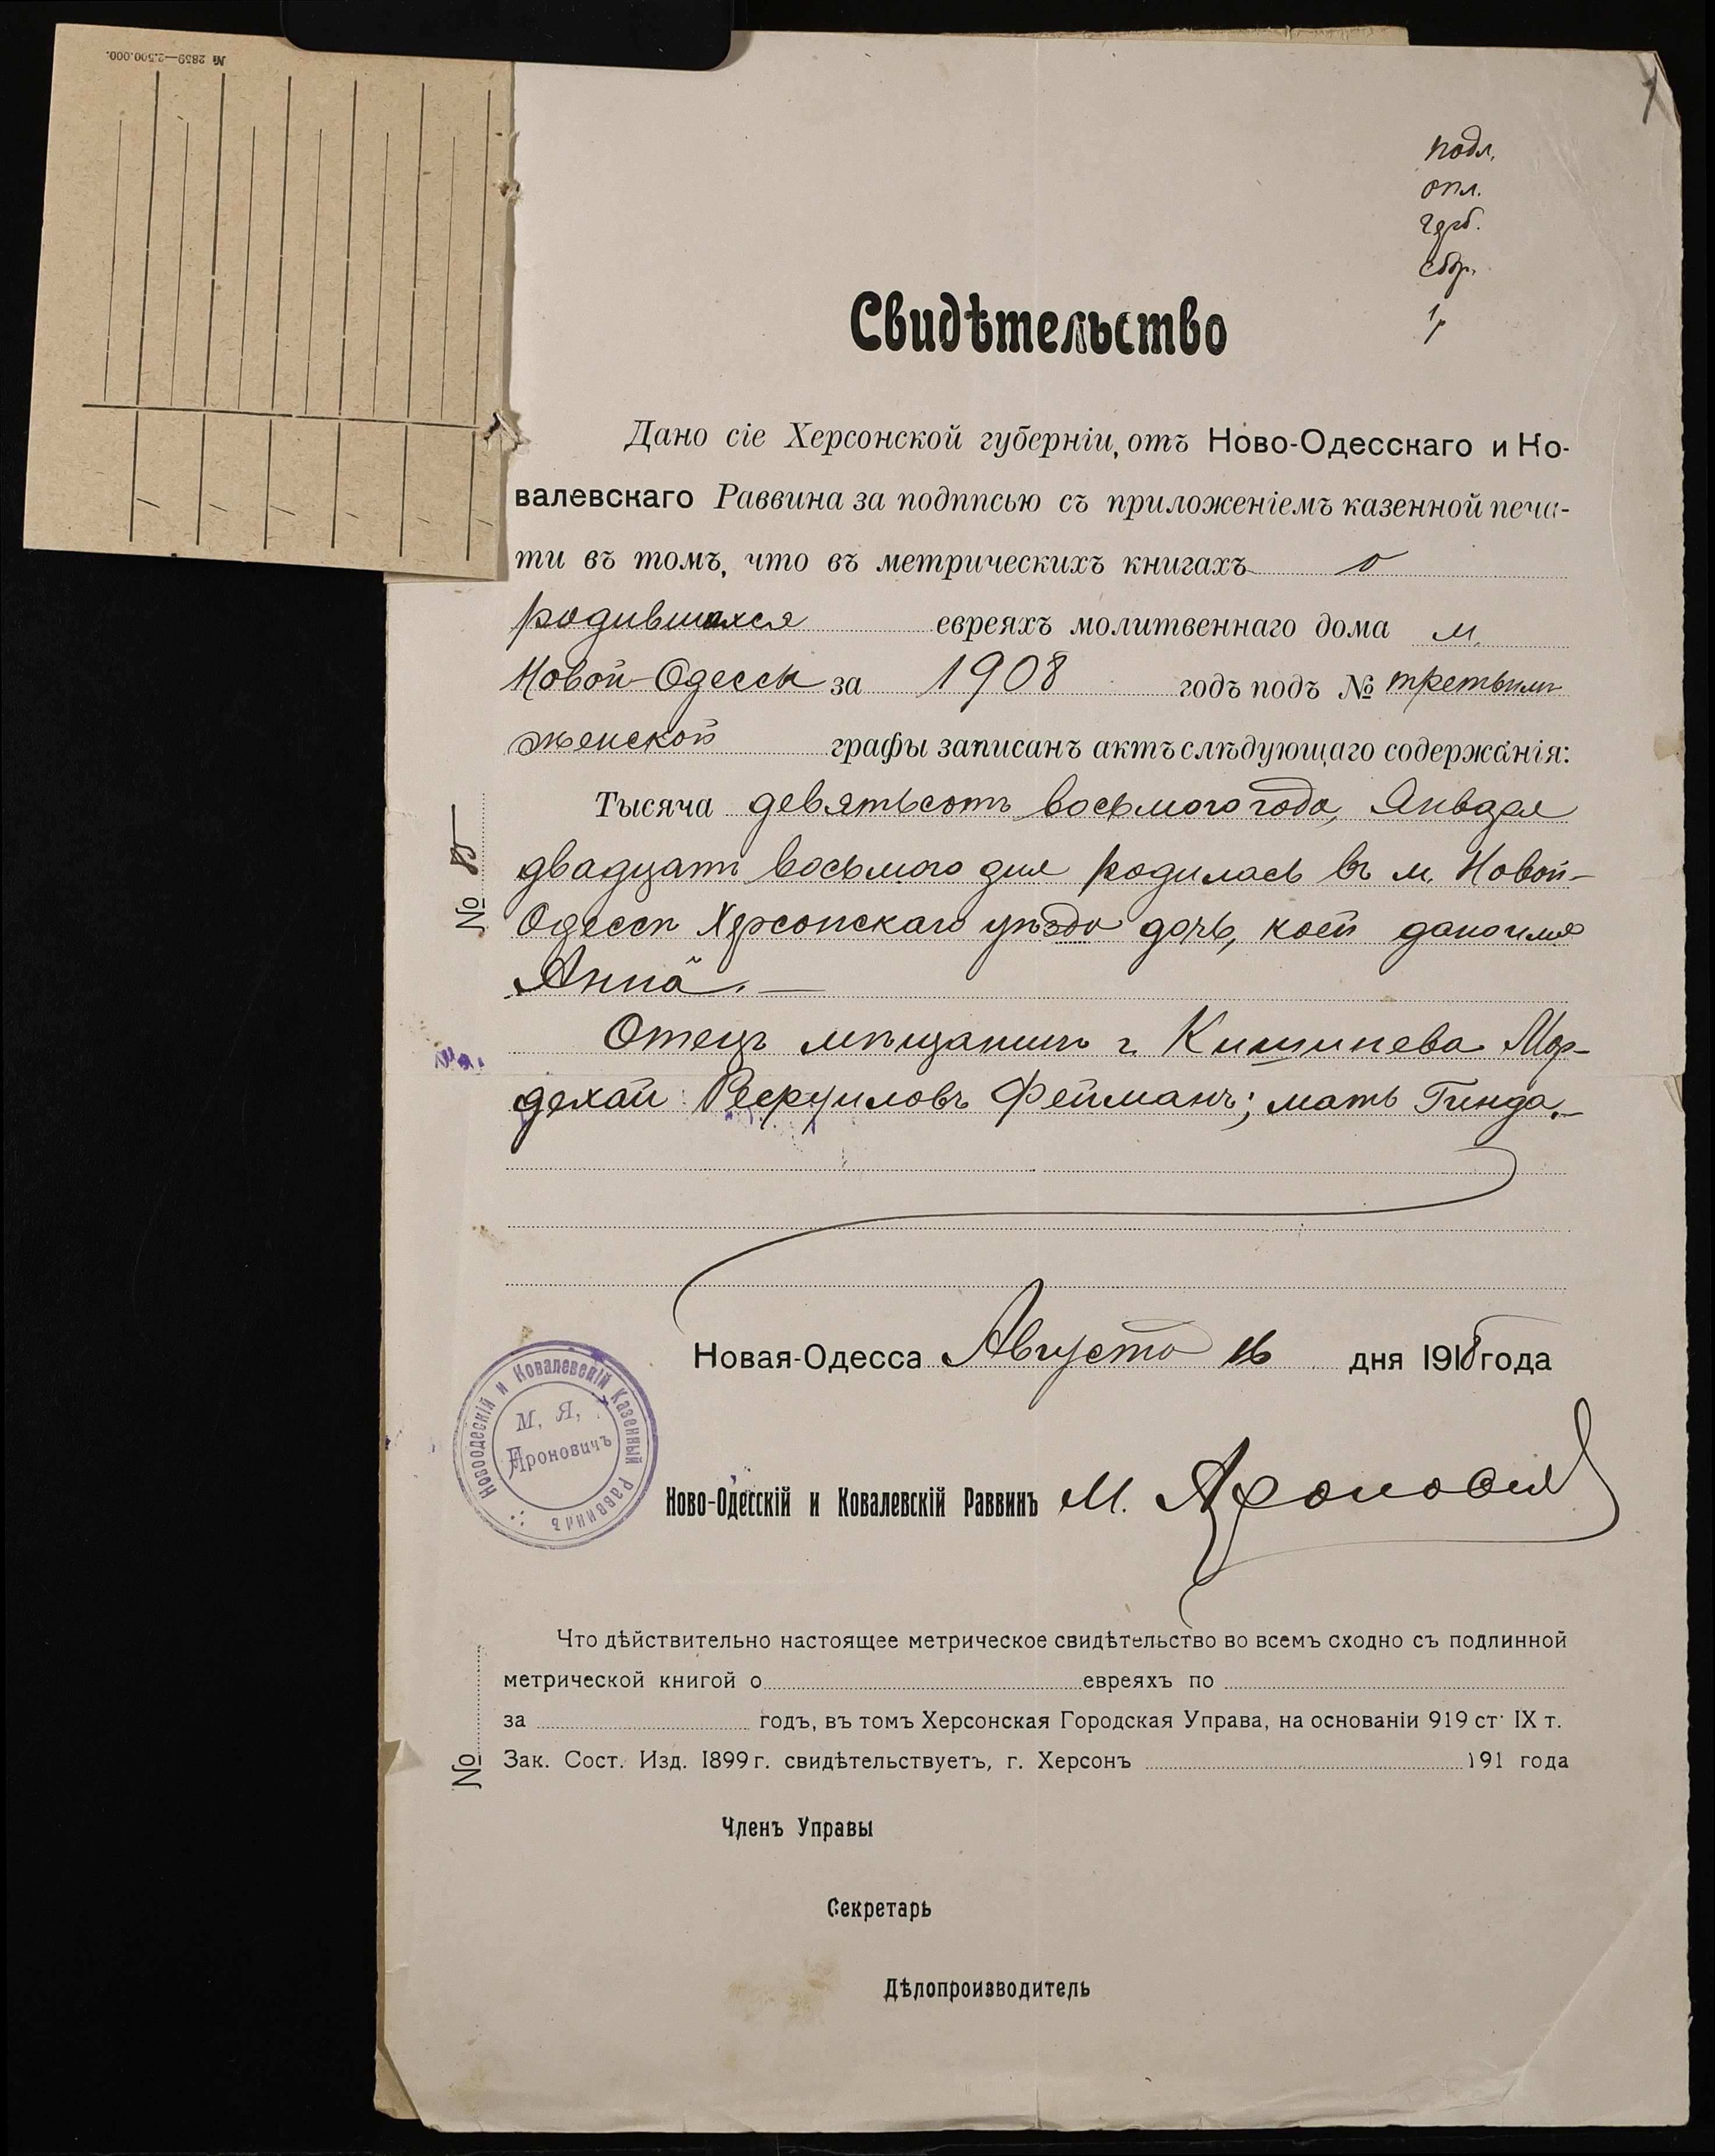 № 2859—2.500.000.
1
подл.
опл.
герб.
сбор.
1р
Свидѣтельство
Дано сіе Херсонской губерніи, отъ Ново-Одесскаго и Ко-
валевскаго Раввина за подписью съ приложеніемъ казенной печа-
ти въ томъ, что въ метрическихъ книгахъ о
родившихся евреяхъ молитвеннаго дома м.
Новой-Одессѣ за 1908 годъ подъ № третьимъ
женской графы записанъ актъ слѣдующаго содержанія:
Тысяча девятьсотъ восьмого года, Января
двадцать восьмого дня родилась въ м. Новой-
Одессѣ Херсонскаго уѣзда дочь, коей дано имя
Анна. —
Отецъ мѣщанинъ г. Кишинева Мор-
дехай Рефуиловъ Фейманъ; мать Гинда. —
№ 5
Новая-Одесса Августа 16 дня 1918 года
Новоодескій и Ковалевскій Казенный Раввинъ
М. Я.
Ароновичъ
Ново-Одесскій и Ковалевскій Раввинъ М. Ароновичъ
Что дѣйствительно настоящее метрическое свидѣтельство во всемъ сходно съ подлинной
метрической книгой о евреяхъ по
за годъ, въ томъ Херсонская Городская Управа, на основаніи 919 ст. IX т.
Зак. Сост. Изд. 1899 г. свидѣтельствуетъ, г. Херсонъ 191 года
№
Членъ Управы
Секретарь
Дѣлопроизводитель